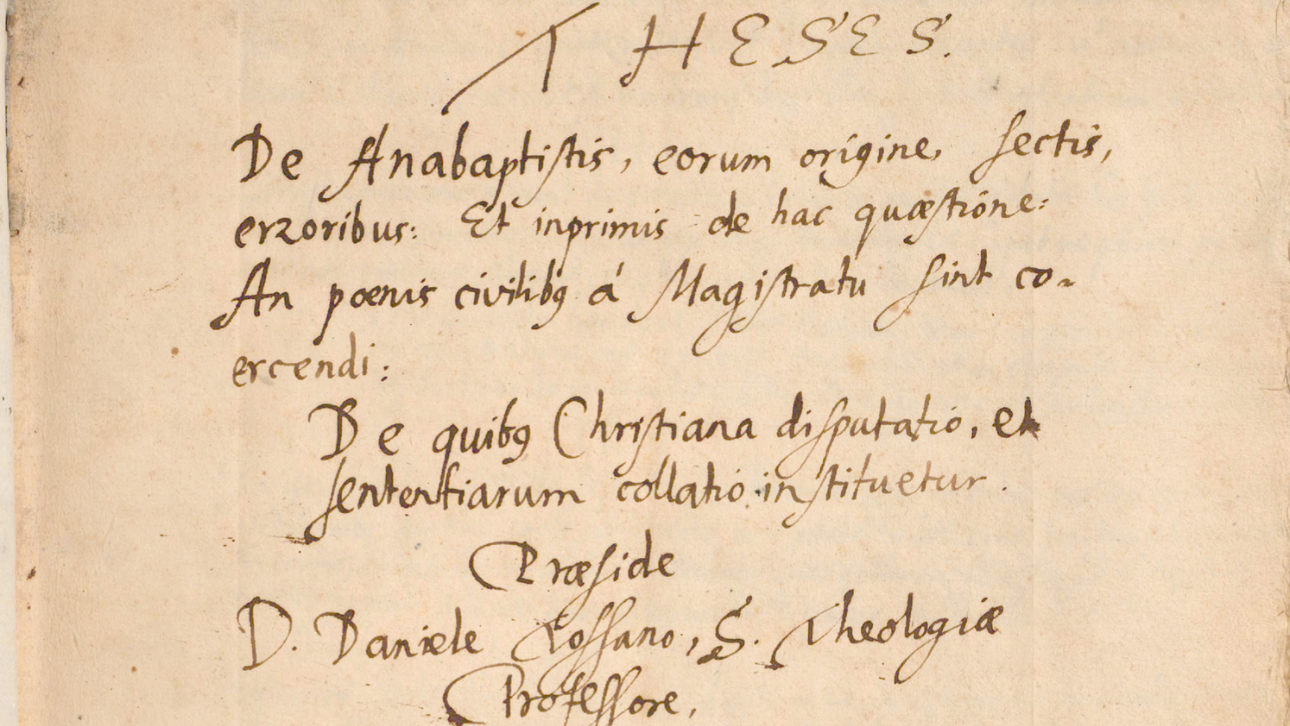 THESES.
De Anabaptistis, eorum origine, sectis,
erroribus: Et inprimis de hac quæstione:
An poenis civilibꝰ á Magistratu sint co-
ercendi:
De quibꝰ Christiana disputatio, et
sententiarum collatio instituetur.
Præside
D. Daniele Tossano, S. Theologiæ
Professore,